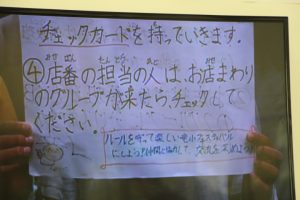 チェックカードを持っていきます。
④店番の担当の人は、お店まわり
のグループが来たら、チェックして
ください。
ルールを守って楽しい
にしよう!仲間と協力して、交流を深めよう!